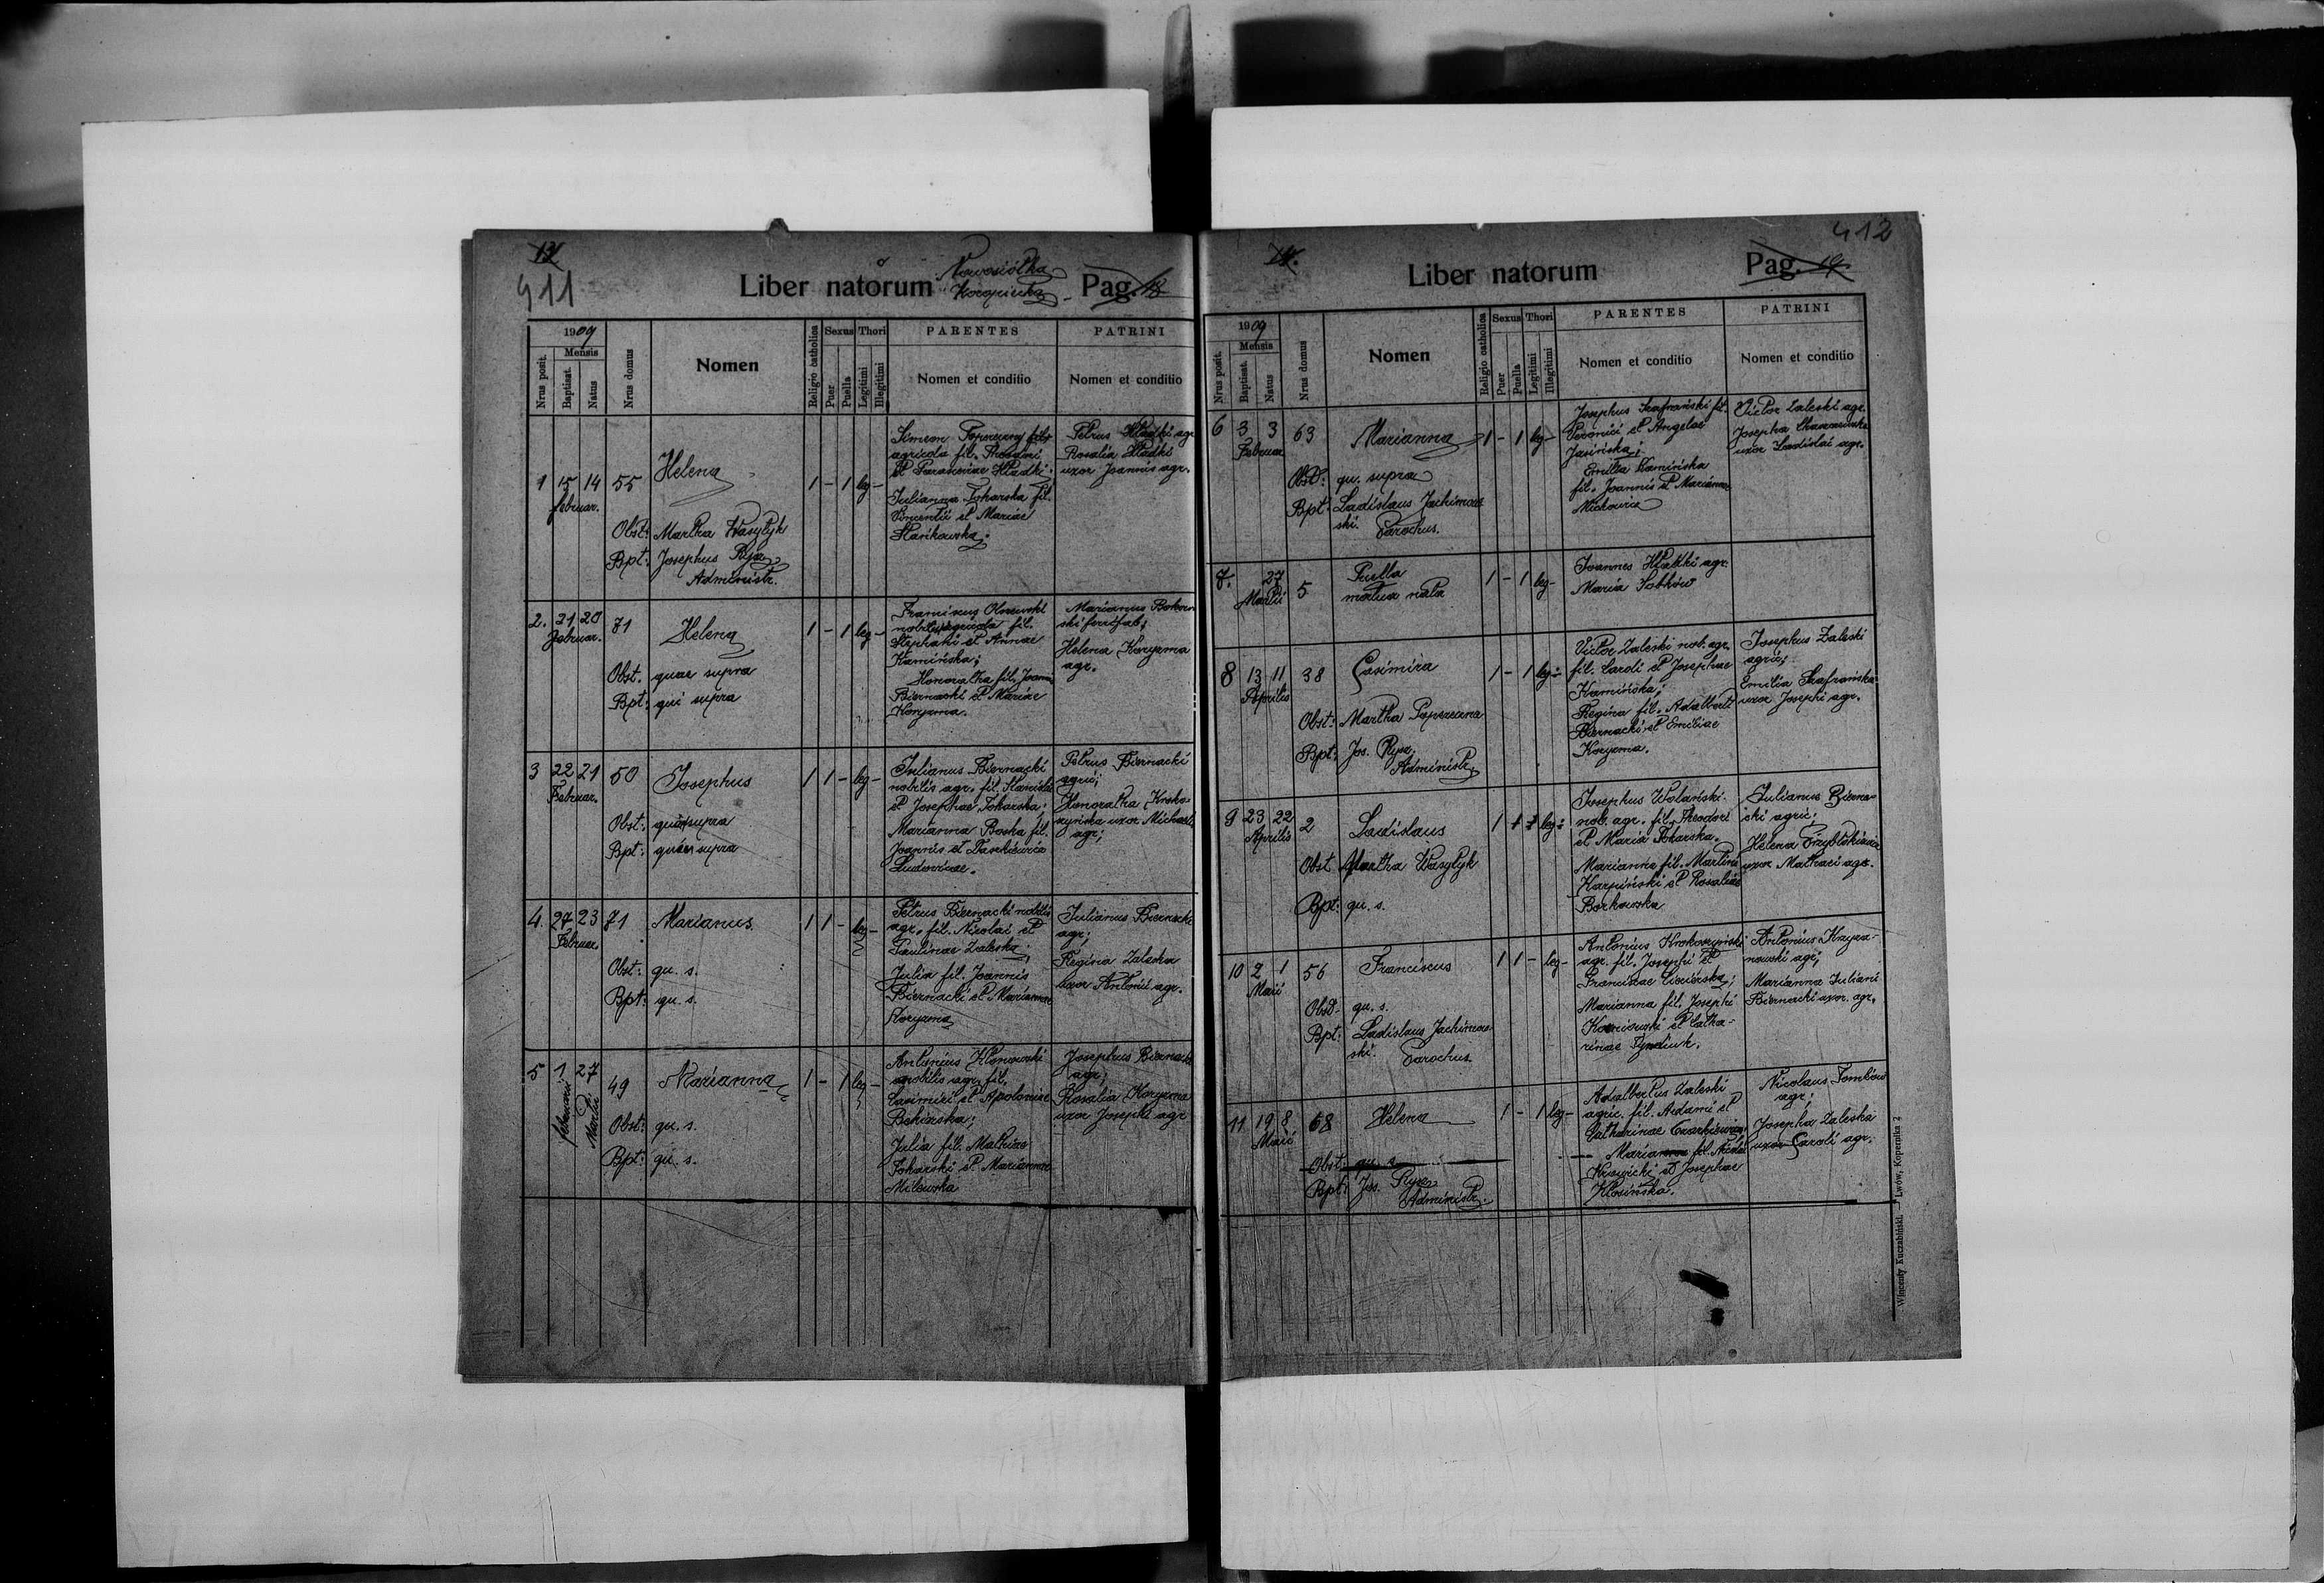 13
411
Liber natorum Nowosiółka Koropiecka Pag. 18
1909
Mensis
Nrus posit.
Baptisat.
Natus
Nrus domus
Nomen
Religio catholica
Sexus
Puer
Puella
Thori
Legitimi
Illegitimi
PARENTES
Nomen et conditio
PATRINI
Nomen et conditio
1 15 14 55 Helena 1 - 1 leg -
februar.
Obst: Martha Wasylyk
Bpt: Josephus Rysz
Administr.
Simeon
agricola fil. Theodori
et Parasceviae Hladki;
Julianna Tokarska fil.
Vincentii et Mariae
Stankowska.
Petrus Hladki agr.
Rosalia Hladki
uxor Joannis agr.
2. 21 20 71 Helena 1 - 1 leg -
februar.
Obst. quae supra
Bpt: qui supra
Franciscus Olszewski
nobilis agricola fil.
Stephani et Annae
Kamińska;
Honoratha fil. Joannis
Biernacki et Mariae
Koryzma.
Marianus
Helena Koryzma
agr.
3 22 21 50 Josephus 1 1 - leg -
Februar.
Obst: supra
Bpt: supra
Julianus Biernacki
nobilis agr. fil. Stanislai
et Josephae Tokarska;
Marianna Boska fil.
Joannis et
Ludovicae.
Petrus Biernacki
agric;
Honoratha Kroko-
szyńska uxor Michaelis
agr;
4. 27 23 71 Marianus. 1 1 - leg -
Februar
Obst: qu. s.
Bpt: qu. s.
Petrus Biernacki nobilis
agr. fil. Nicolai et
Paulinae Zaleska;
Julia fil. Joannis
Biernacki et Mariannae
Koryzma
Julianus Biernacki
agr;
Regina Zaleska
uxor Antonii agr.
5 1 27 49 Marianna 1 - 1 leg -
februarii
Martii
Obst: qu. s.
Bpt: qu. s.
Antonius Klonowski
nobilis agr. fil.
Casimiri et Apoloniae
Julia fil. Mathiae
Tokarski et Mariannae
Milewska
Josephus Biernacki
agr;
Rosalia Koryzma
uxor Josephi agr
14.
412
Liber natorum
Pag. 19
1909
Mensis
Nrus posit.
Baptisat.
Natus
Nrus domus
Nomen
Religio catholica
Sexus
Puer
Puella
Thori
Legitimi
Illegitimi
PARENTES
Nomen et conditio
PATRINI
Nomen et conditio
6 3 3 63 Marianna 1 - 1 leg -
Februar
Obst: qu. supra
Bpt: Ladislaus Jachimow-
ski. Parochus.
Josephus Szafrański fil.
et Angelae
Jasińska;
Emilia Kamińska
fil. Joannis et Mariannae
Victor Zaleski agr.
Josepha
uxor Ladislai agr.
7. 27 5 Puella 1 - 1 leg -
Martii
mortua nata
Joannes Hladki agr.
Maria Sobków
8 13 11 38 Casimira 1 - 1 leg -
Aprilis
Obst: Martha
Bpt: Jos. Rysz.
Administr.
Victor Zaleski nob. agr.
fil. Caroli et Josephae
Kamińska;
Regina fil. Adalberti
Biernacki et Emiliae
Koryzma.
Josephus Zaleski
agric;
Emilia Szafrańska
uxor Josephi agr.
9 23 22 2 Ladislaus 1 1 - leg -
Aprilis
Obst Martha Wasylyk
Bpt: qu. s.
Josephus Wolański
nob. agr. fil. Theodori
et Maria Tokarska.
Marianna fil. Martini
Karpiński et Rosaliae
Borkowska
Julianus Bierna-
ski agric;
Helena
uxor Mathaei agr.
10 2 1 56 Franciscus 1 1 - leg -
Maii
Obst. qu. s.
Bpt: Ladislaus Jachimow-
ski. Parochus.
Antonius Krokoszyński
agr. fil. Josephi et
Franciscae
Marianna fil. Josephi
et Catha-
rinae
Antonius Krzyża-
nowski agr;
Marianna Juliani
Biernacki uxor. agr.
11 19 8 68 Helena 1 - 1 leg -
Maii
Obst: qu. s.
Bpt: Jos. Rysz
Administr.
Adalbertus Zaleski
agric. fil. Adami et
Catharinae
Marianna fil. Nicolai
Krupicki et Josephae
Kłosińska.
Nicolaus Tomków
agr;
Josepha Zaleska
uxor Caroli agr.
Wincenty Kuczabiński, Lwów, Kopernika 2